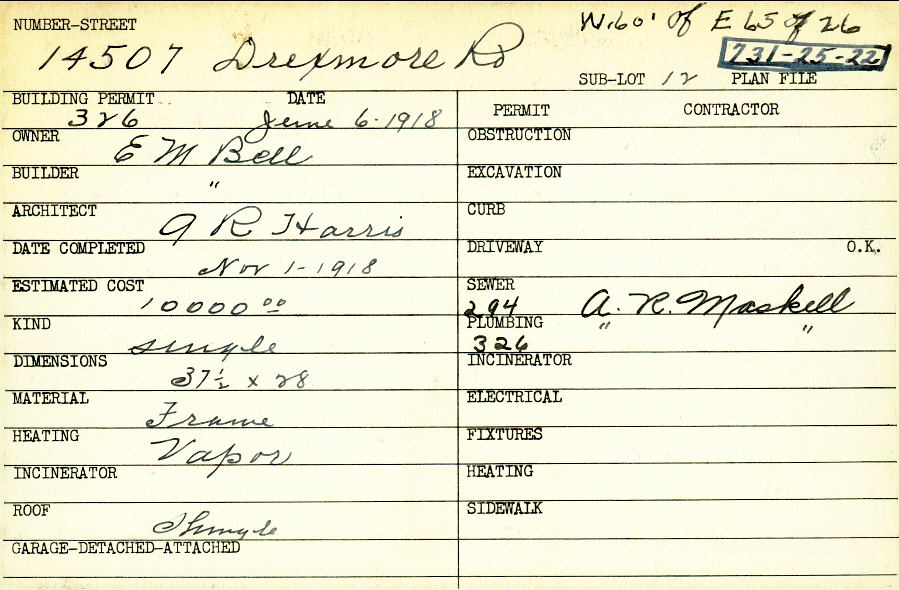 NUMBER-STREET W.60' of E 65 of 26
14507 Drexmore Rd 731-25-22
SUB-LOT 12 PLAN FILE
BUILDING PERMIT DATE
326 June 6-1918
OWNER
E M Bell
BUILDER
"
ARCHITECT
A R Harris
DATE COMPLETED
Nov 1-1918
ESTIMATED COST
10000 00
KIND
single
DIMENSIONS
37 1/2 x 28
MATERIAL
Frame
HEATING
Vapor
INCINERATOR
ROOF
Shingle
GARAGE-DETACHED-ATTACHED
PERMIT CONTRACTOR
OBSTRUCTION
EXCAVATION
CURB
DRIVEWAY O.K.
SEWER
294 A. R. Maskell
PLUMBING " "
326
INCINERATOR
ELECTRICAL
FIXTURES
HEATING
SIDEWALK